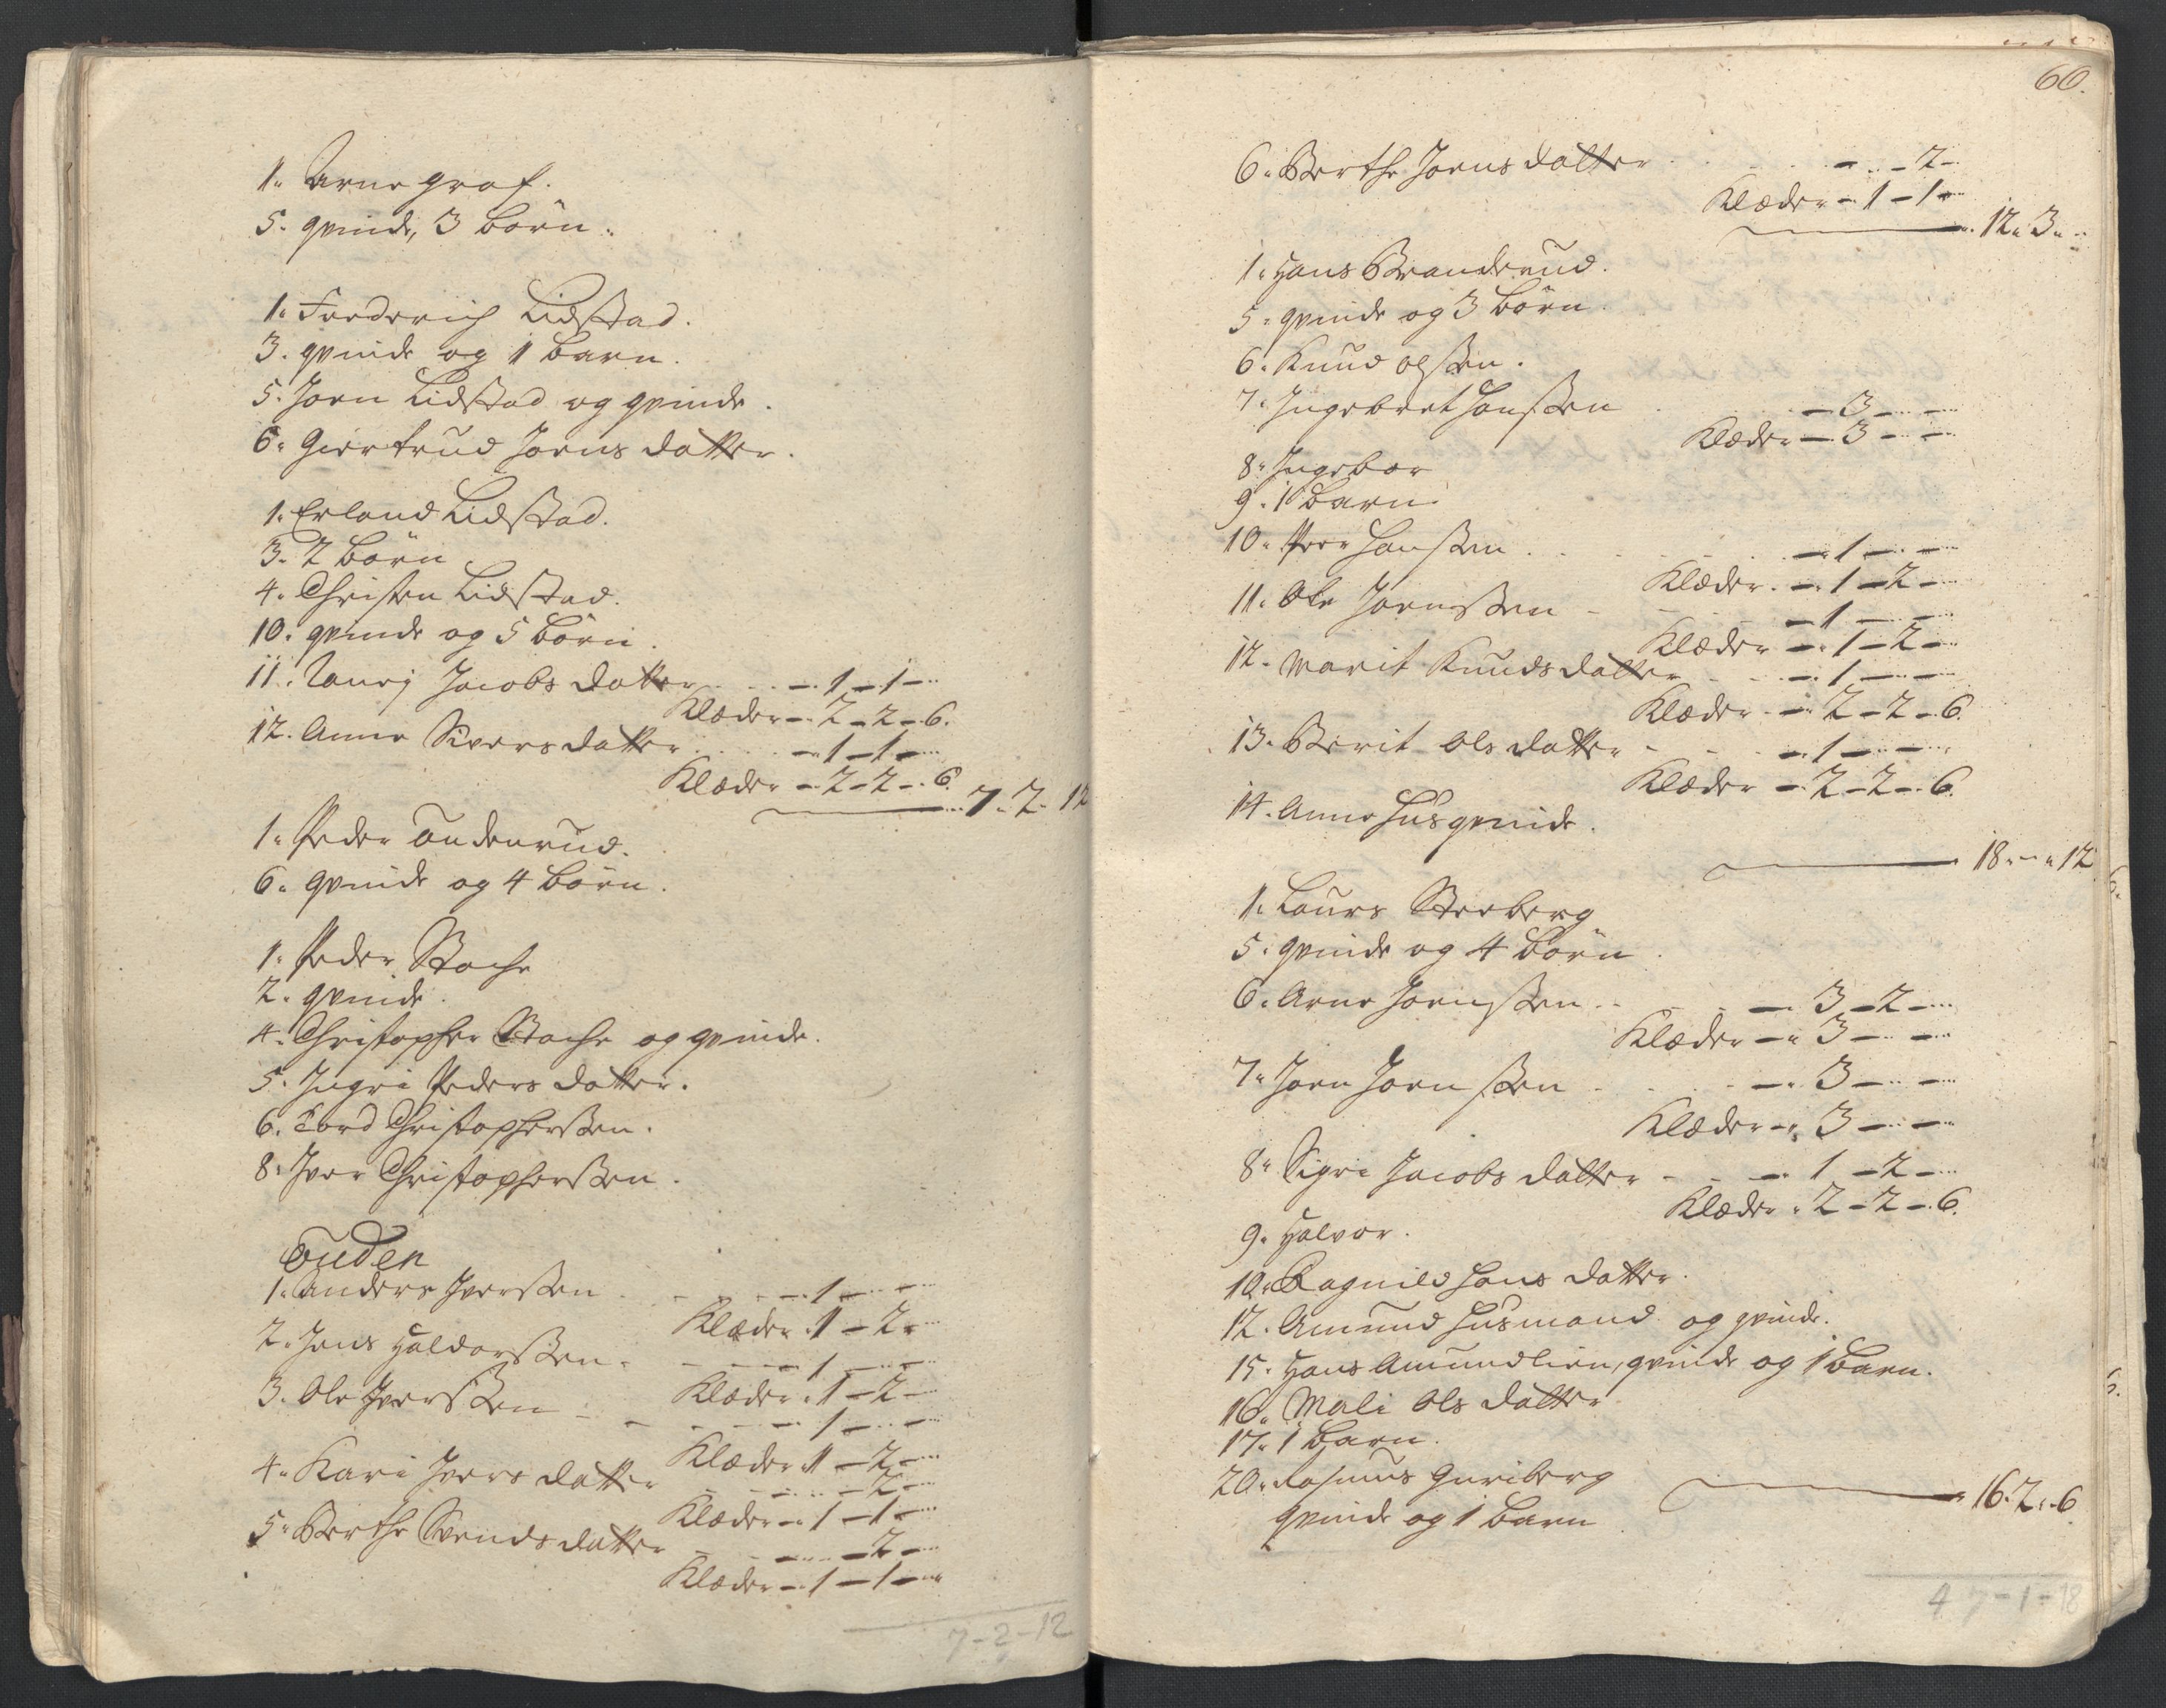 1. Arne graf.
5. qvinde, 3 börn.
1. Frederich Lidstad.
3. qvinde og 1 barn.
5. Joen Lidstad og qvinde.
6. Giertrud Joens datter.
1. Erland Lidstad.
3. 2 börn
4. Christen Lidstad.
10. qvinde og 5 börn.
11. Jacobs datter - 1 - 1 -
Klæder - 2 - 2 - 6.
12. Anne Sivers datter - 1 - 1 -
Klæder - 2 - 2 - 6.
7 - 2 - 12
1. Peder Oudenrud.
6. qvinde og 4 börn.
1. Peder Bache
2. qvinde.
4. Christopher Bache og qvinde.
5. Ingri Peders datter.
6. Tord Christophersen.
8. Iver Christophersen.
Ouden
1. Anders Iversen - 1 -
Klæder 1 - 2 -
2. Jens Haldorsen - 1 -
Klæder 1 - 2 -
3. Ole Iversen - 1 -
Klæder 1 - 2 -
4. Kari Ivers datter - 2 -
Klæder - 1 - 1 -
5. Berthe Svends datter - 2 -
Klæder - 1 - 1 -
7 - 2 - 12
60.
6. Berthe Joens datter - 2 -
Klæder - 1 - 1 -
12. 3.
1. Hans Branderud.
5. qvinde og 3 börn.
6. Knud olsen.
7. Ingebret Hansen - 3 -
Klæder - 3 -
8. Ingebor
9. 1 barn
10. Peer Hansen - 1 -
Klæder - 1 - 2 -
11. Ole Joensen - 1 -
Klæder - 1 - 2 -
12. Marit Knuds datter - 1 -
Klæder - 2 - 2 - 6.
13. Berit Ols datter - 1 -
Klæder - 2 - 2 - 6.
14. Anne Husqvinde.
18 - 12
1. Laurs
5. qvinde og 4 börn.
6. Arne Joensen - 3 - 2 -
Klæder - 3 -
7. Joen Joensen - 3 -
Klæder - 3 -
8. Sigri Jacobs datter - 1 - 2 -
Klæder - 2 - 2 - 6.
9. Halvor.
10. Ragnild Hans datter.
12. Amund Husmand og qvinde.
15. Hans Amundlien, qvinde og 1 barn.
16. Mali Ols datter
17. 1 barn.
20. Rasmus Guriberg
qvinde og 1 barn
16. 2. 6
4 7 - 1 - 18